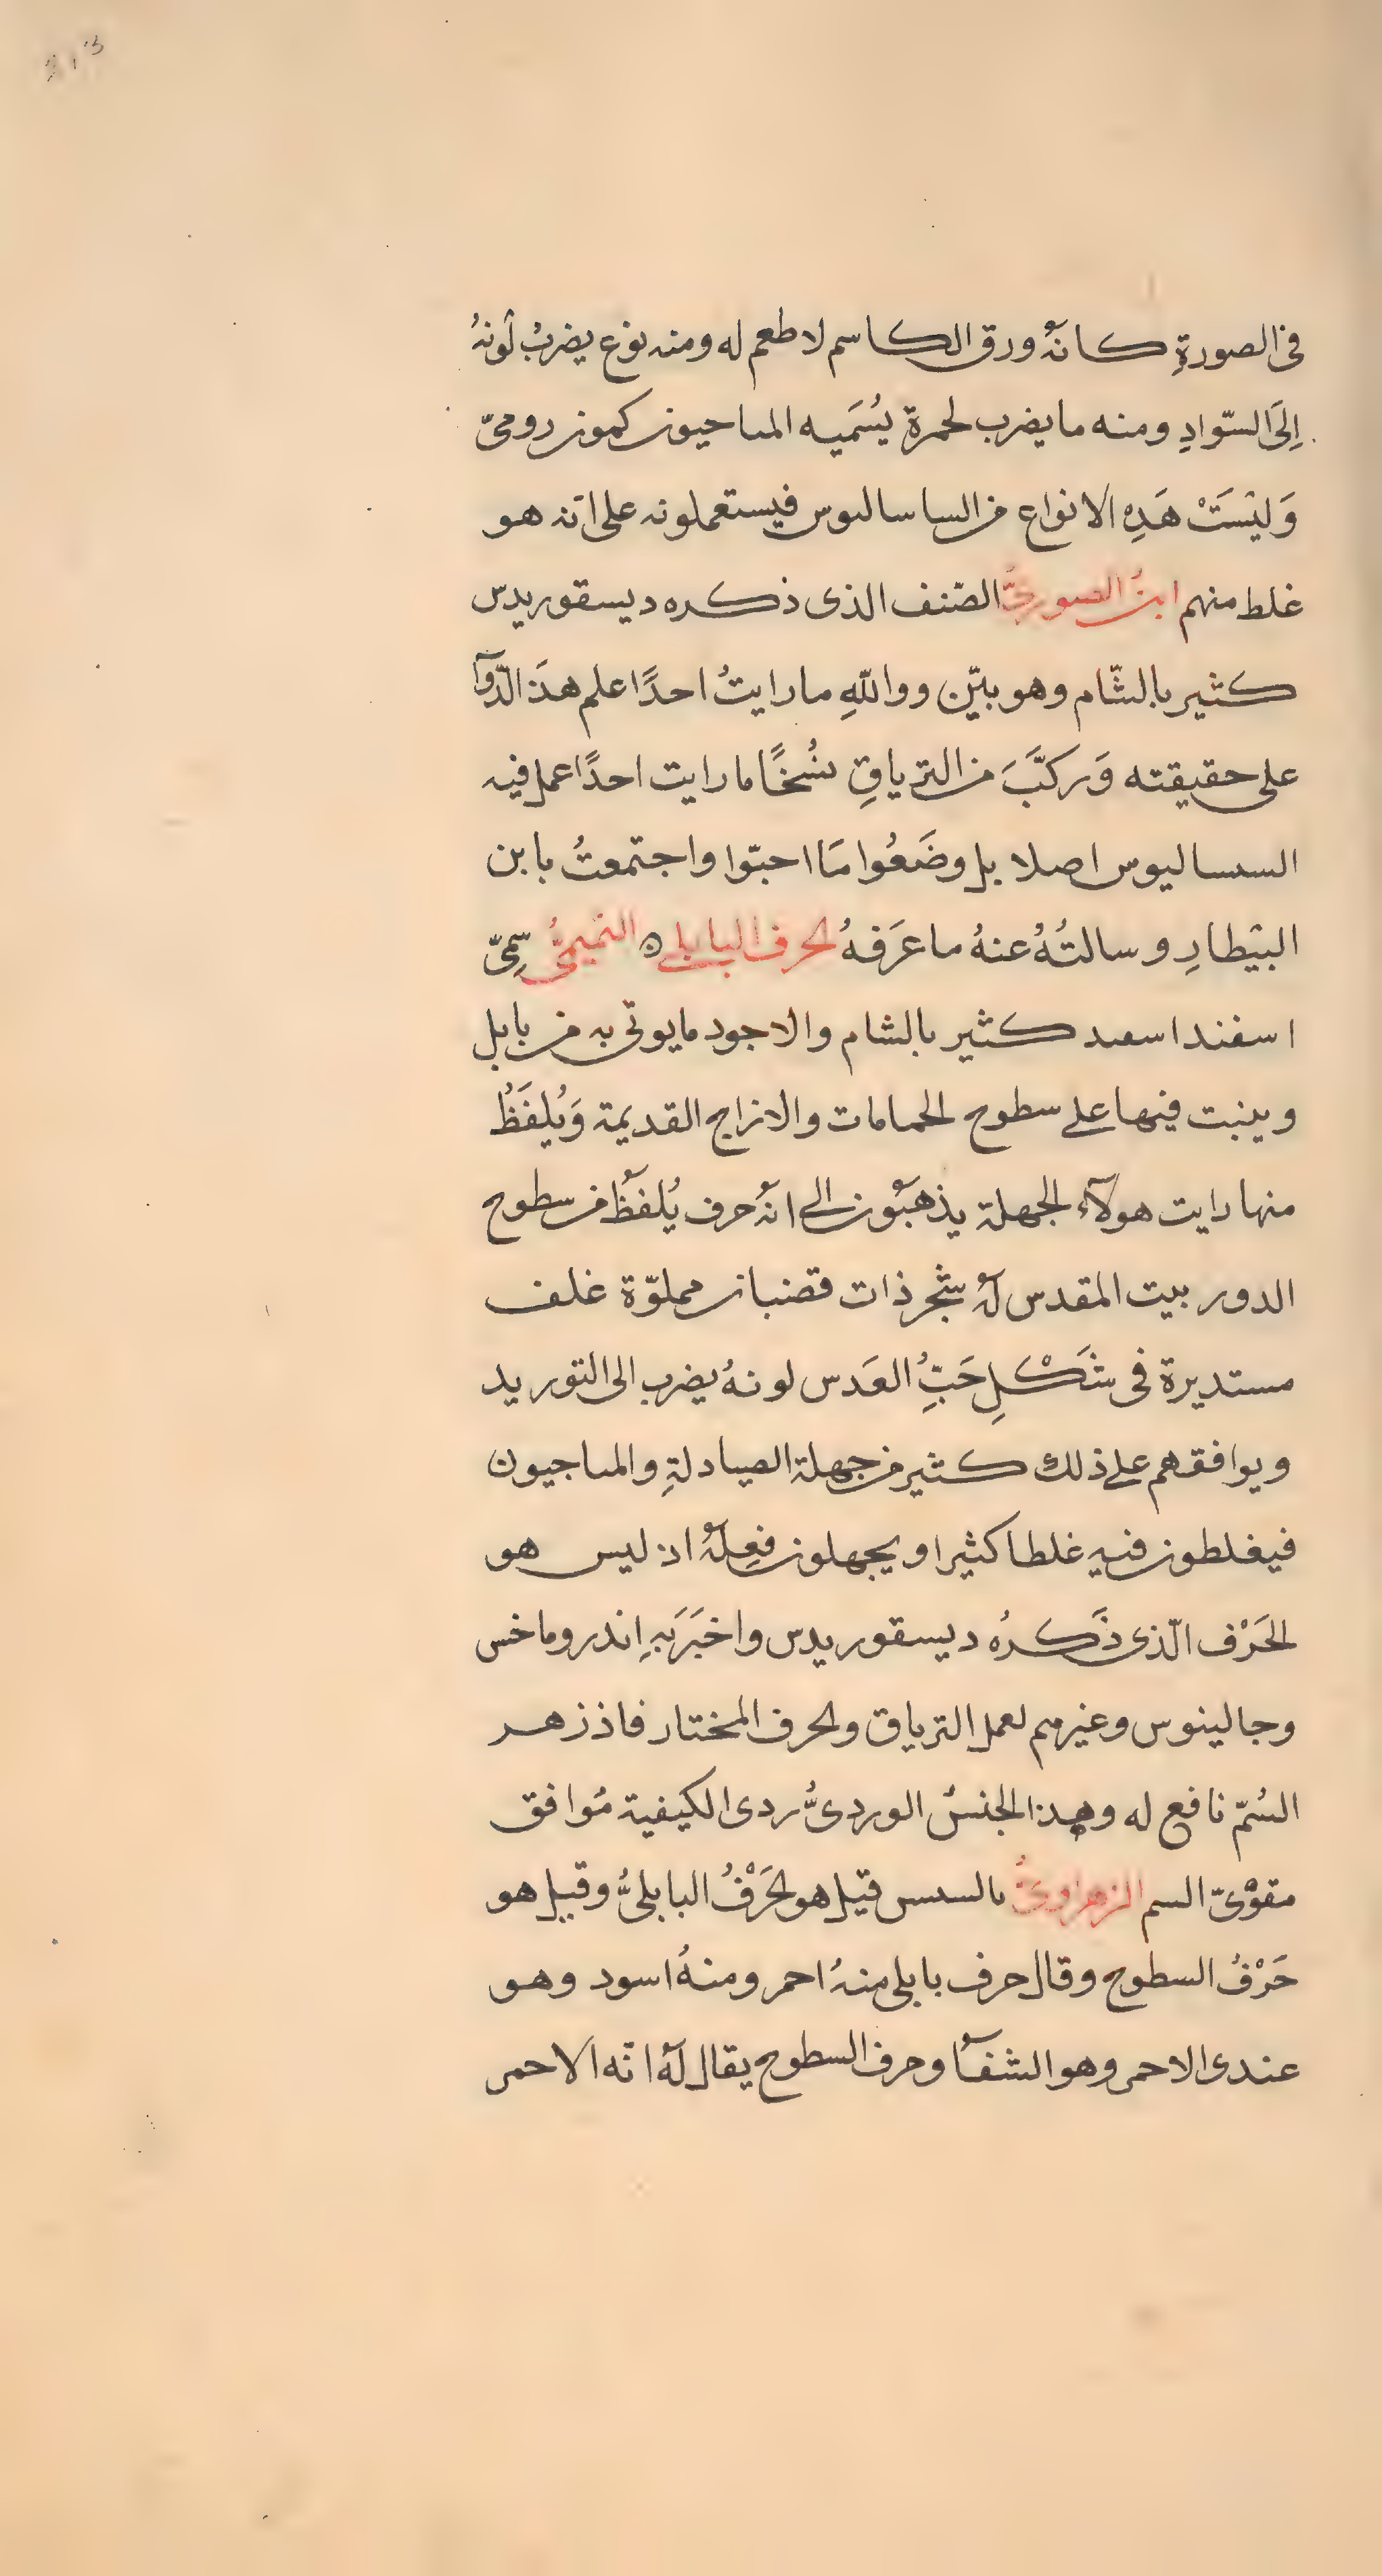 فى الصورةِ كانهُ ورق الكاسم لا طعم له ومنه نوع يضربُ لونهُ
اِلىَ السّوادِ ومنه ما يضرب لحمرة يُسَميه المىاحيون كمون رومىّ
وَليْسَتْ هَذِه الانواع من الساسالىوس فيستعملونه على انه هو
غلط منهم ابنُ الصورىُّ الصّنف الذى ذكره ديسقوريدس
كثير بالشّام وهو بيّن ووالله ما رايتُ احدًا علم هذَ الدّوآ
على حقيقته وَركبَّ من الترياقِ نسُخًا ما رايت احدًا عمل فيه
السىساليوس اصلا بل وضَعُوا مَا احبّوا واجتمعتُ بابن
البيْطارِ وسالتُهُ عنهُ ما عرَفهُ لحرف البابلى ه التميمىُّ سِمىّ
اسفنداسعىد كثير بالشام والاجود ما يوتى به من بابل
وينبت فيها على سطوح الحمامات والازاج القديمة وَيُلفَظُ
منها رايت هولآء الجهلة يذهبُون الى انهُ حرف يُلفظُ من سطوح
الدور ببيت المقدس لهُ شجر ذات قضبان مملوّة غلف
مستديرة فى شَكْلِ حَبِّ العَدس لونهُ يضرب الى التوريد
ويوافقهم على ذلك كثير من جهلة الصيادلةِ والمىاجيون
فيغلطون فيه غلطا كثيرا ويجهلون فِعلهُ اذ ليس هو
الحَرْف الّذى ذَكرهُ ديسقوريدس واخبَرَ بهِ اندروماخس
وجالينوس وغيرهم لعمل الترياق ولحرف المختار فاذ زهر
السُمّ نافع له وهذا الجنسُ الوردىُّ ردى الكيفية مُوافق
مقوْىّ السم الزهراوىُّ ىالسىسس قيل هو لحَرْفُ البابلىُّ وقيل هو
حَرْفُ السطوح وقال حرف بابلى منهُ احمر ومنهُ اسود وهو
عندى الاحمر وهو الشفآ وحرف السطوح يقال لهُ انّه الاحمر